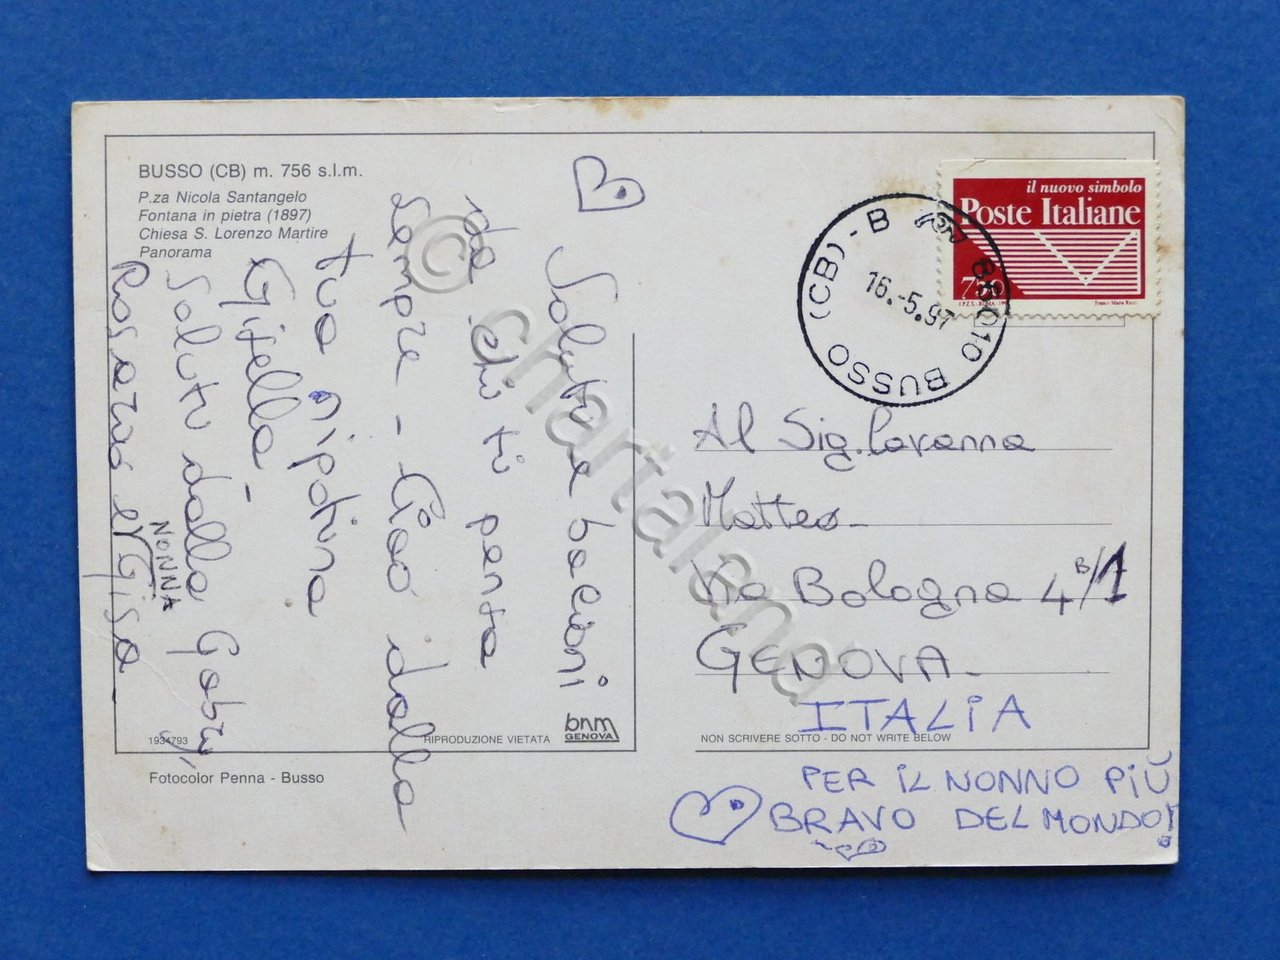 BUSSO (CB) m. 756 s.l.m.
P.za Nicola Santangelo
Fontana in pietra (1897)
Chiesa S. Lorenzo Martire
Panorama
Saluti e bacioni
da chi ti pensa
sempre - Ciao dalla
tua nipotina
Gisella -
Saluti dalla Gabry,
Rosario e
NONNA
Gisa
1934793
RIPRODUZIONE VIETATA
bnm
GENOVA
Fotocolor Penna - Busso
il nuovo simbolo
Poste Italiane
750
I.P.Z.S. - ROMA - 1996
Franco Maria Ricci
86010 BUSSO (CB) - B
16.-5.97
Al Sig. Cavanna
Matteo
Via Bologna 4 B/1
GENOVA
ITALIA
NON SCRIVERE SOTTO - DO NOT WRITE BELOW
PER IL NONNO PIÙ
BRAVO DEL MONDO!
© chartaland